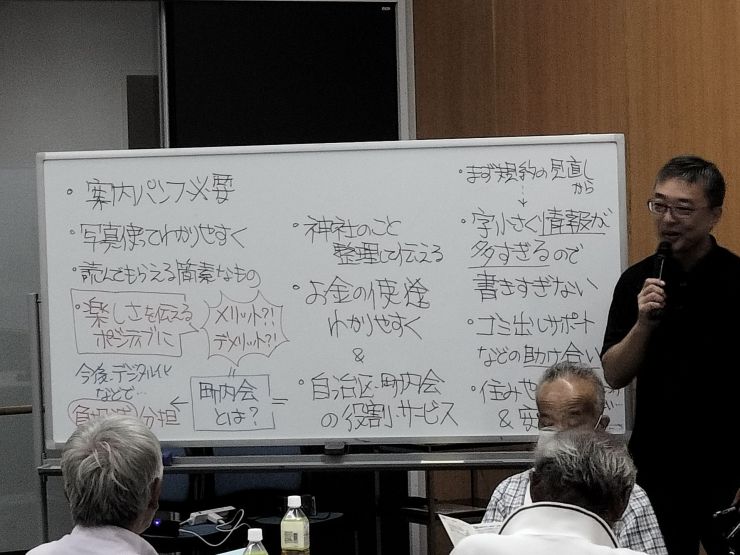 ・案内パンフ必要
・写真使ってわかりやすく
・読んでもらえる簡素なもの
・楽しさを伝える
ポジティブに
メリット?!
デメリット?!
今後…デジタル化
などで…
負担減/分担
←
町内会
とは?
=
・神社のこと
整理して伝える
・お金の使途
わかりやすく
&
・自治区・町内会
の役割・サービス
・まず規約の見直し
から
・字小さく情報が
多すぎるので
書きすぎない
・ゴミ出しサポート
などの助け合い
・住みやす
&安